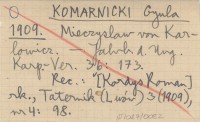 KOMARNICKI Gyula
1909. Mieczysław von Kar-
łowicz. Jahrb. d. Ung.
Karp.-Ver. 36: 173.
Rec.: "[Kordys Roman]
rk., Taternik (Lwów) 3 (1909),
nr 4: 98.